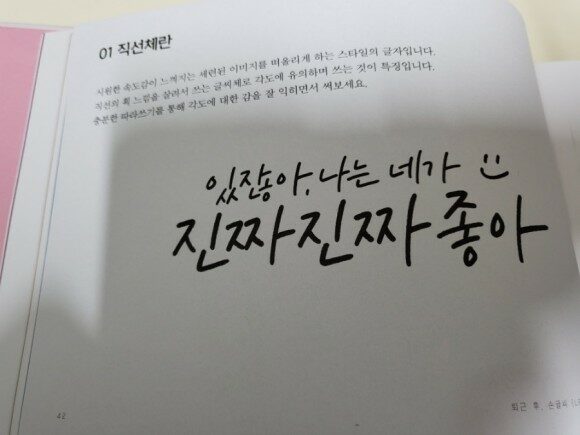 01 직선체란
시원한 속도감이 느껴지는 세련된 이미지를 떠올리게 하는 스타일의 글자입니다.
직선의 획 느낌을 살려서 쓰는 글씨체로 각도에 유의하며 쓰는 것이 특징입니다.
충분한 따라쓰기를 통해 각도에 대한 감을 잘 익히면서 써보세요.
있잖아, 나는 네가
진짜진짜 좋아
42
퇴근 후, 손글씨